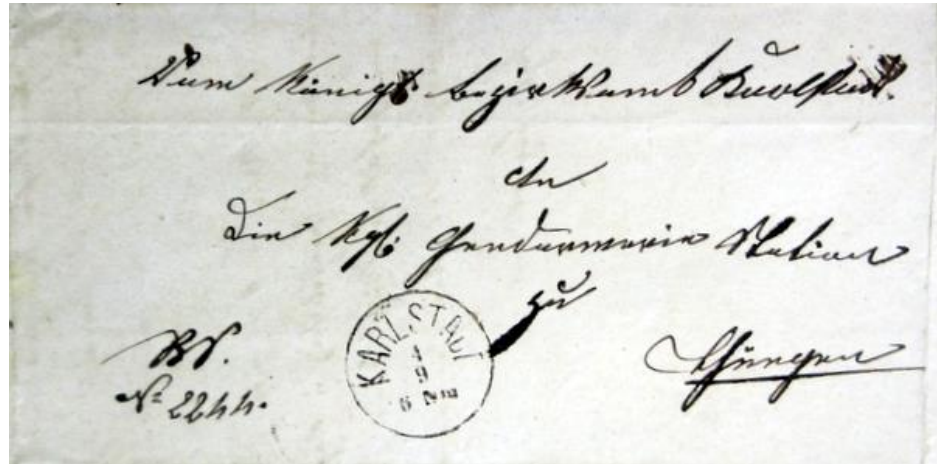 Vom Königl. Bezirksamt Karlstadt.
An
Die Kgl. Gendarmerie Station
zu
Thüngen
KARLSTADT
No 2244.